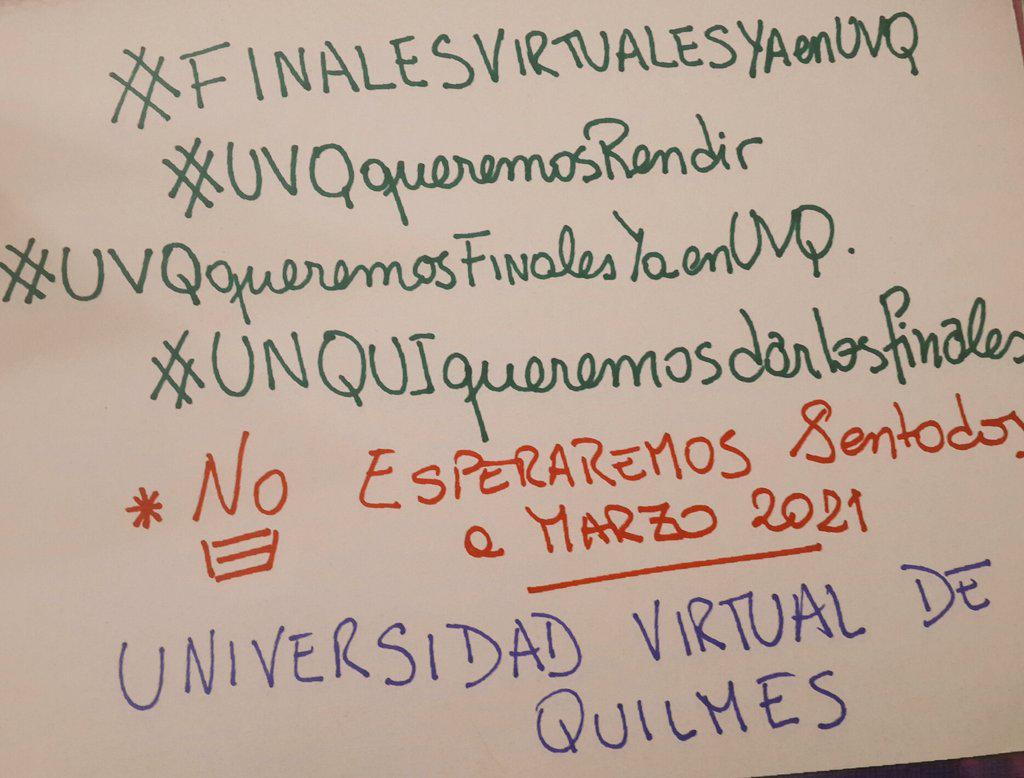 #FINALESVIRTUALESYAenUVQ
#UVQqueremosRendir
#UVQqueremosFINalesYaenUVQ.
#UNQUIqueremosdarlosfinales
* NO ESPERAREMOS Sentodos
a MARZO 2021
UNIVERSIDAD VIRTUAL DE
QUILMES